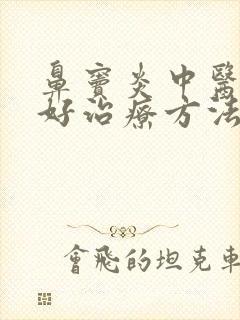 鼻竇炎中醫
好治療方法
會飛的坦克車